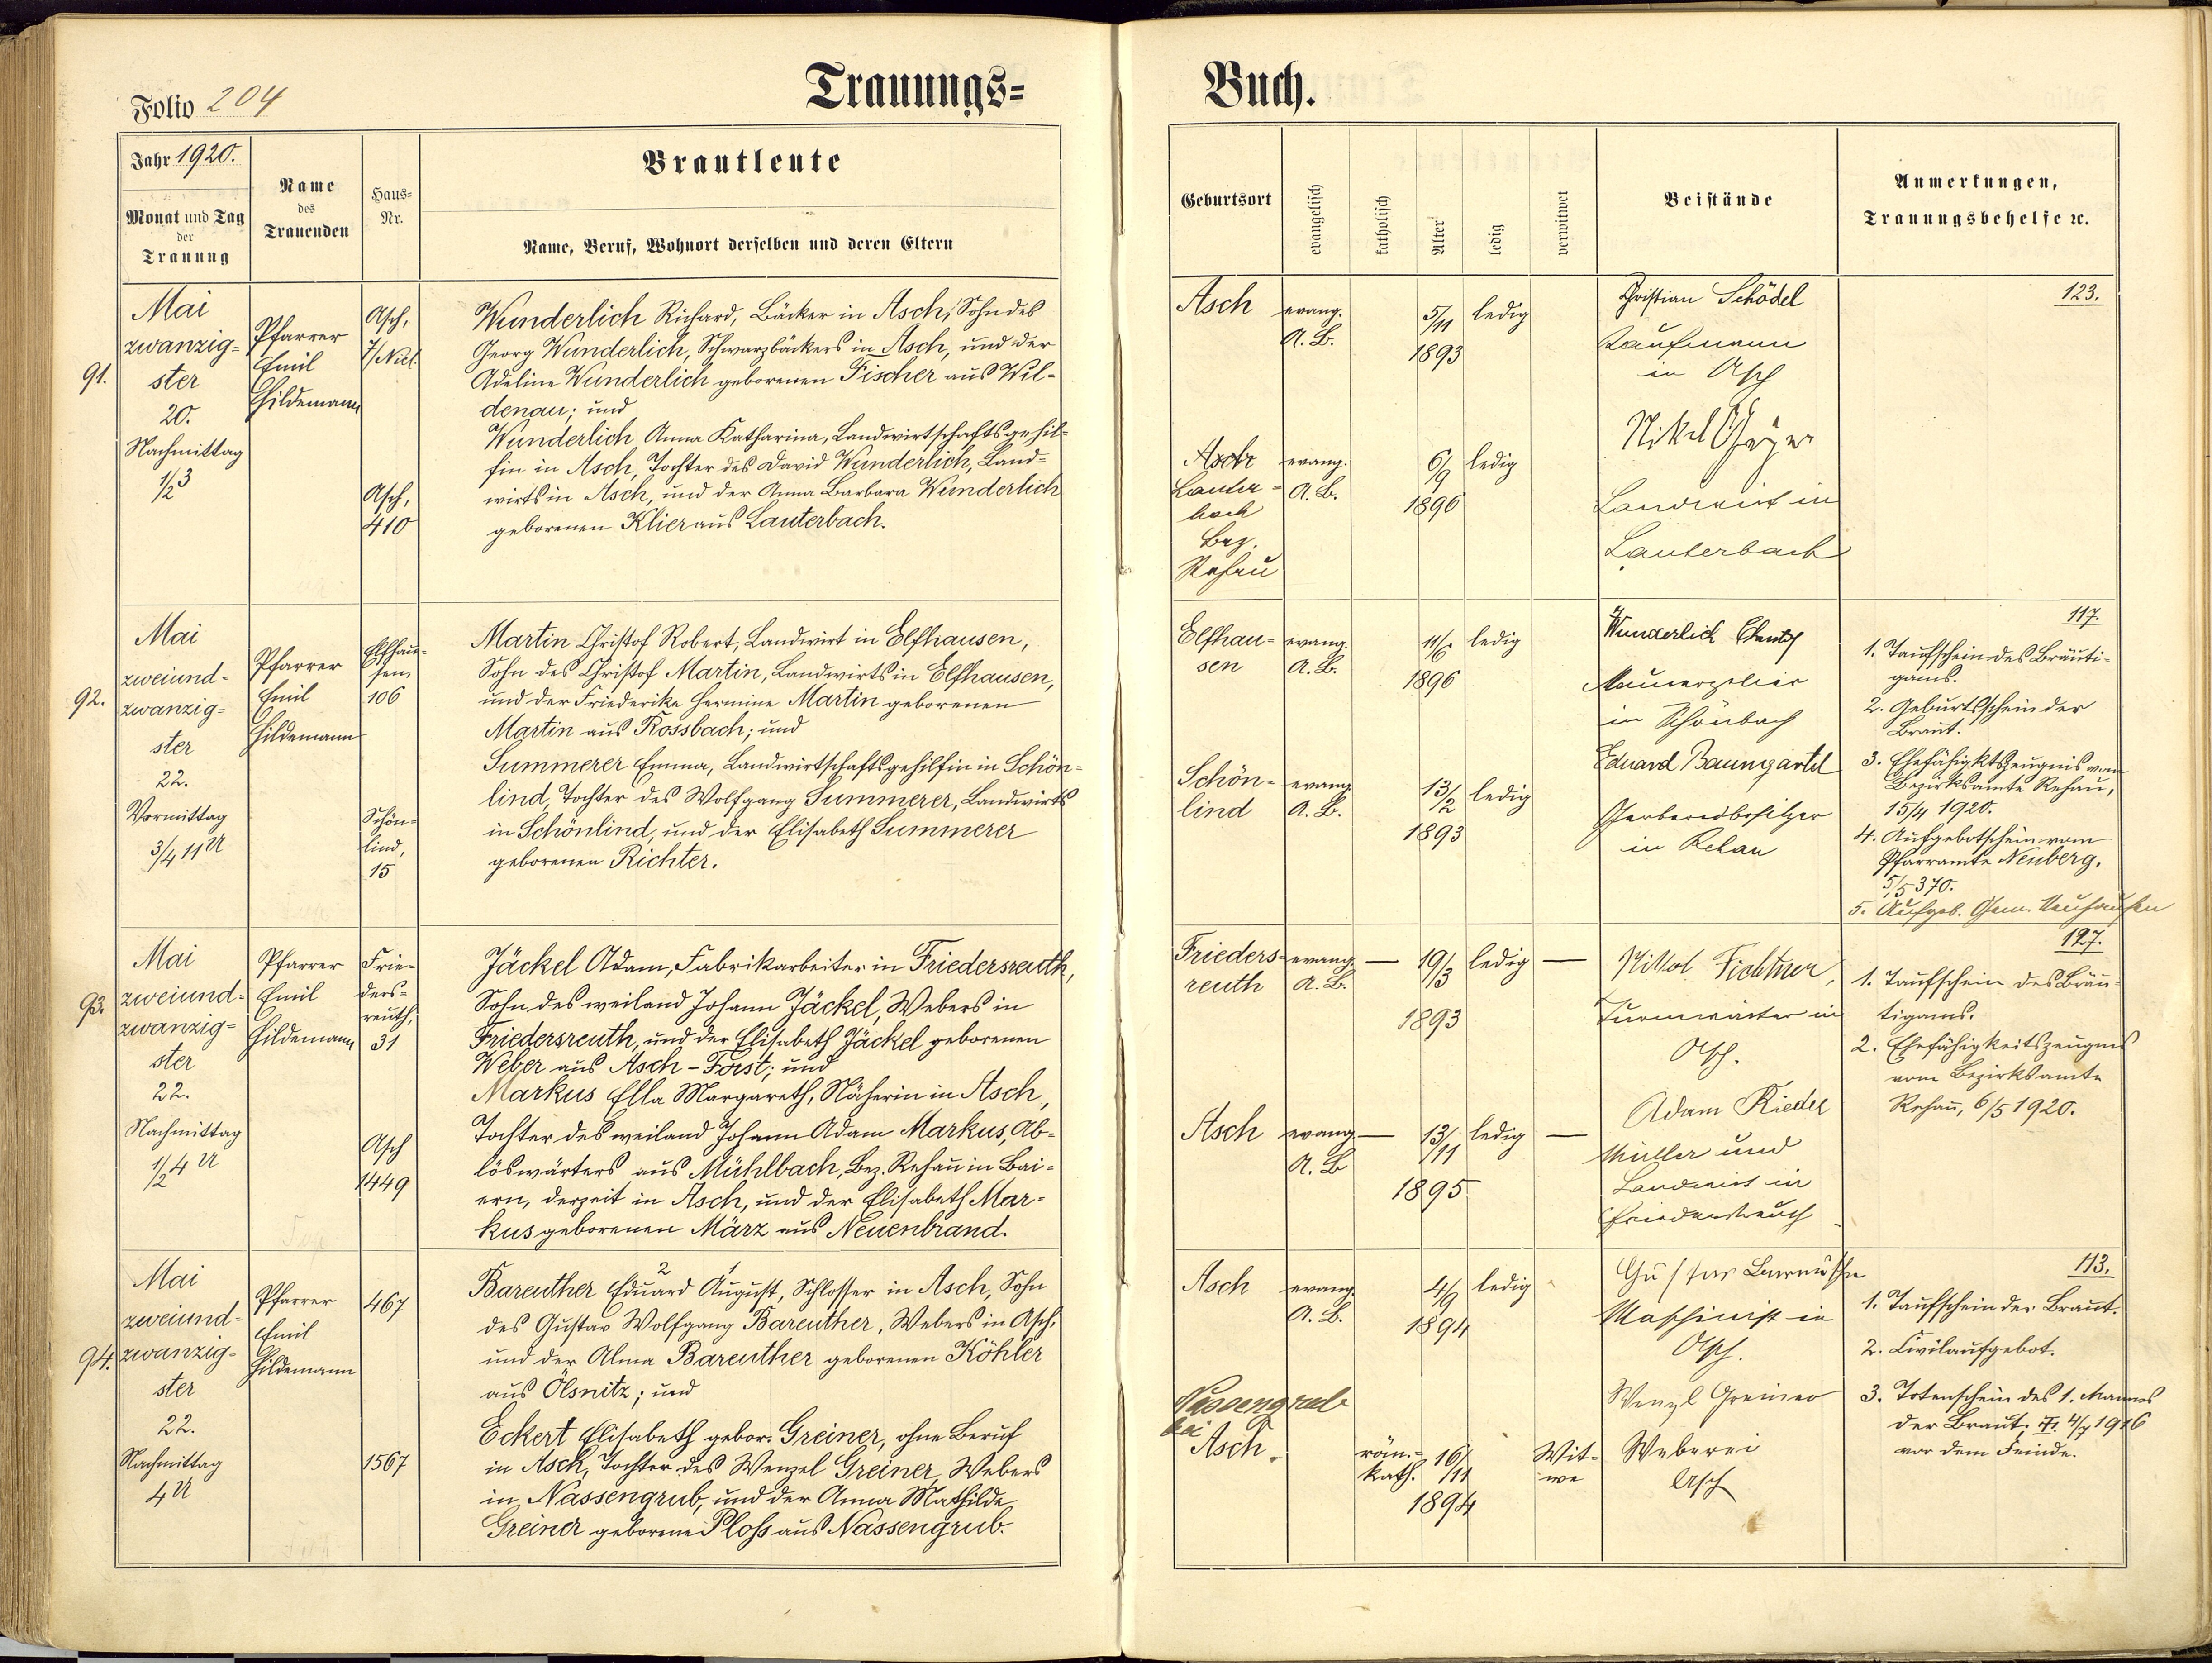 Trauungs=
Buch.
Folio 204
Jahr 1920.
Monat und Tag
der
Trauung
Name
des
Trauenden
Haus=
Nr.
Brautleute
Name, Beruf, Wohnort derselben und deren Eltern
Geburtsort
evangelisch
katholisch
Alter
ledig
verwitwet
Beistände
Anmerkungen,
Trauungsbehelfe ꝛc.
91.
Mai
zwanzig=
ster
20.
Nachmittag
1/2 3
Pfarrer
Emil
Hildemann
Asch,
7/Nicl.
Asch,
410
Wunderlich Richard, Bäcker in Asch, Sohn des
Georg Wunderlich, Schwarzbäckers in Asch, und der
Adeline Wunderlich geborenen Fischer aus Wil=
denau; und
Wunderlich Anna Katharina, Landwirtschaftsgehil=
fin in Asch, Tochter des David Wunderlich, Land=
wirts in Asch, und der Anna Barbara Wunderlich
geborenen Klier aus Lauterbach.
Asch
evang.
A. B.
5/11
1893
ledig
Christian Schödel
Kaufmann
in Asch
123.
Asch
Lauter=
bach
Bez.
Rehau
evang.
A. B.
6/9
1896
ledig
Nikol Geyer
Landwirt in
Lauterbach
92.
Mai
zweiund=
zwanzig=
ster
22.
Vormittag
3/4 11 U
Pfarrer
Emil
Hildemann
Elfhau=
sen,
106
Schön=
lind,
15
Martin Christof Robert, Landwirt in Elfhausen,
Sohn des Christof Martin, Landwirts in Elfhausen,
und der Friederike Hermine Martin geborenen
Martin aus Rossbach; und
Summerer Emma, Landwirtschaftsgehilfin in Schön=
lind, Tochter des Wolfgang Summerer, Landwirts
in Schönlind, und der Elisabeth Summerer
geborenen Richter.
Elfhau=
sen
evang.
A. B.
11/6
1896
ledig
Wunderlich
Maurerpolier
in Schönbach
Schön=
lind
evang.
A. B.
13/2
1893
ledig
Eduard Baumgärtel
Gerbereibesitzer
in Rehau
117.
1. Taufschein des Bräuti=
gams.
2. Geburtsschein der
Braut.
3. Ehefähigktszeugnis vom
Bezirksamte Rehau,
15/4 1920.
4. Aufgebotschein vom
Pfarramte Neuberg.
5/5 370.
5. Aufgeb. Gem. Neuhausen
93.
Mai
zweiund=
zwanzig=
ster
22.
Nachmittag
1/2 4 U
Pfarrer
Emil
Hildemann
Frie=
ders=
reuth,
31
Asch
1449
Jäckel Adam, Fabrikarbeiter in Friedersreuth,
Sohn des weiland Johann Jäckel, Webers in
Friedersreuth, und der Elisabeth Jäckel geborenen
Weber aus Asch - Forst; und
Markus Ella Margareth, Näherin in Asch,
Tochter des weiland Johann Adam Markus, Ab=
löswärters aus Mühlbach, Bez. Rehau in Bai=
ern, derzeit in Asch, und der Elisabeth Mar=
kus geborenen März aus Neuenbrand.
Frieders=
reuth
evang.
A. B.
—
19/3
1893
ledig
—
Nikol Fichtner,
Turmwärter in
Asch.
Asch
evang.
A. B.
—
13/11
1895
ledig
—
Adam Riedel
Müller und
Landwirt in
Friedersreuth
127.
1. Taufschein des Bräu=
tigams.
2. Ehefähigkeitszeugnis
vom Bezirksamte
Rehau, 6/5 1920.
94.
Mai
zweiund=
zwanzig=
ster
22.
Nachmittag
4 U
Pfarrer
Emil
Hildemann
467
1567
2 1
Bareuther Eduard August, Schlosser in Asch, Sohn
des Gustav Wolfgang Bareuther, Webers in Asch,
und der Alma Bareuther geborenen Köhler
aus Ölsnitz; und
Eckert Elisabeth gebor. Greiner, ohne Beruf
in Asch, Tochter des Wenzel Greiner, Webers
in Nassengrub, und der Anna Mathilde
Greiner geborene Ploß aus Nassengrub.
Asch
evang.
A. B.
4/9
1894
ledig
Gustav
Maschinist in
Asch.
Nassengrub
bei
Asch.
röm.=
kath.
16/11
1894
Wit=
we
Wenzl Greiner
Weberei
Asch
113.
1. Taufschein der Braut.
2. Civilaufgebot.
3. Totenschein des 1. Mannes
der Braut, † 4/7 1916
vor dem Feinde.